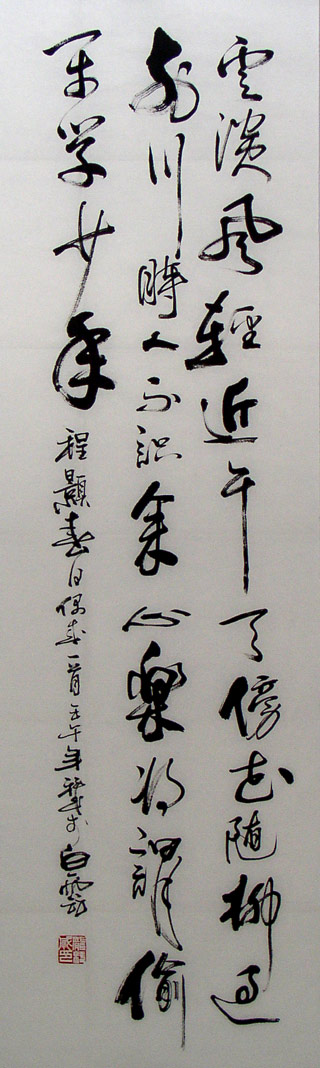 雲淡風輕近午天傍花隨柳過
前川時人不識余心樂將謂偷
閒學少年
程顥春日偶成一首壬午年 於白雲